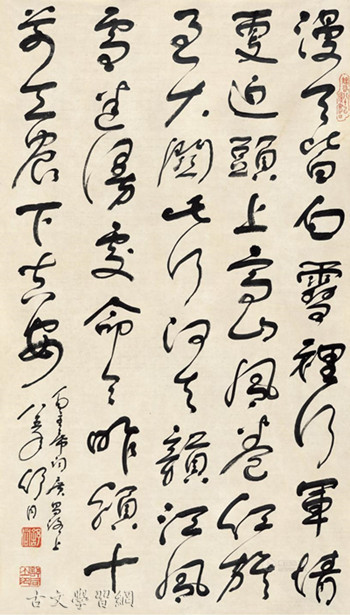 漫天皆白雪裡行軍情
更迫頭上高山風卷紅旗
過大關此行何去贛江風
雪迷漫處命令昨頒十
万工農下吉安
毛主席詞廣昌路上
舒同
古文學習網